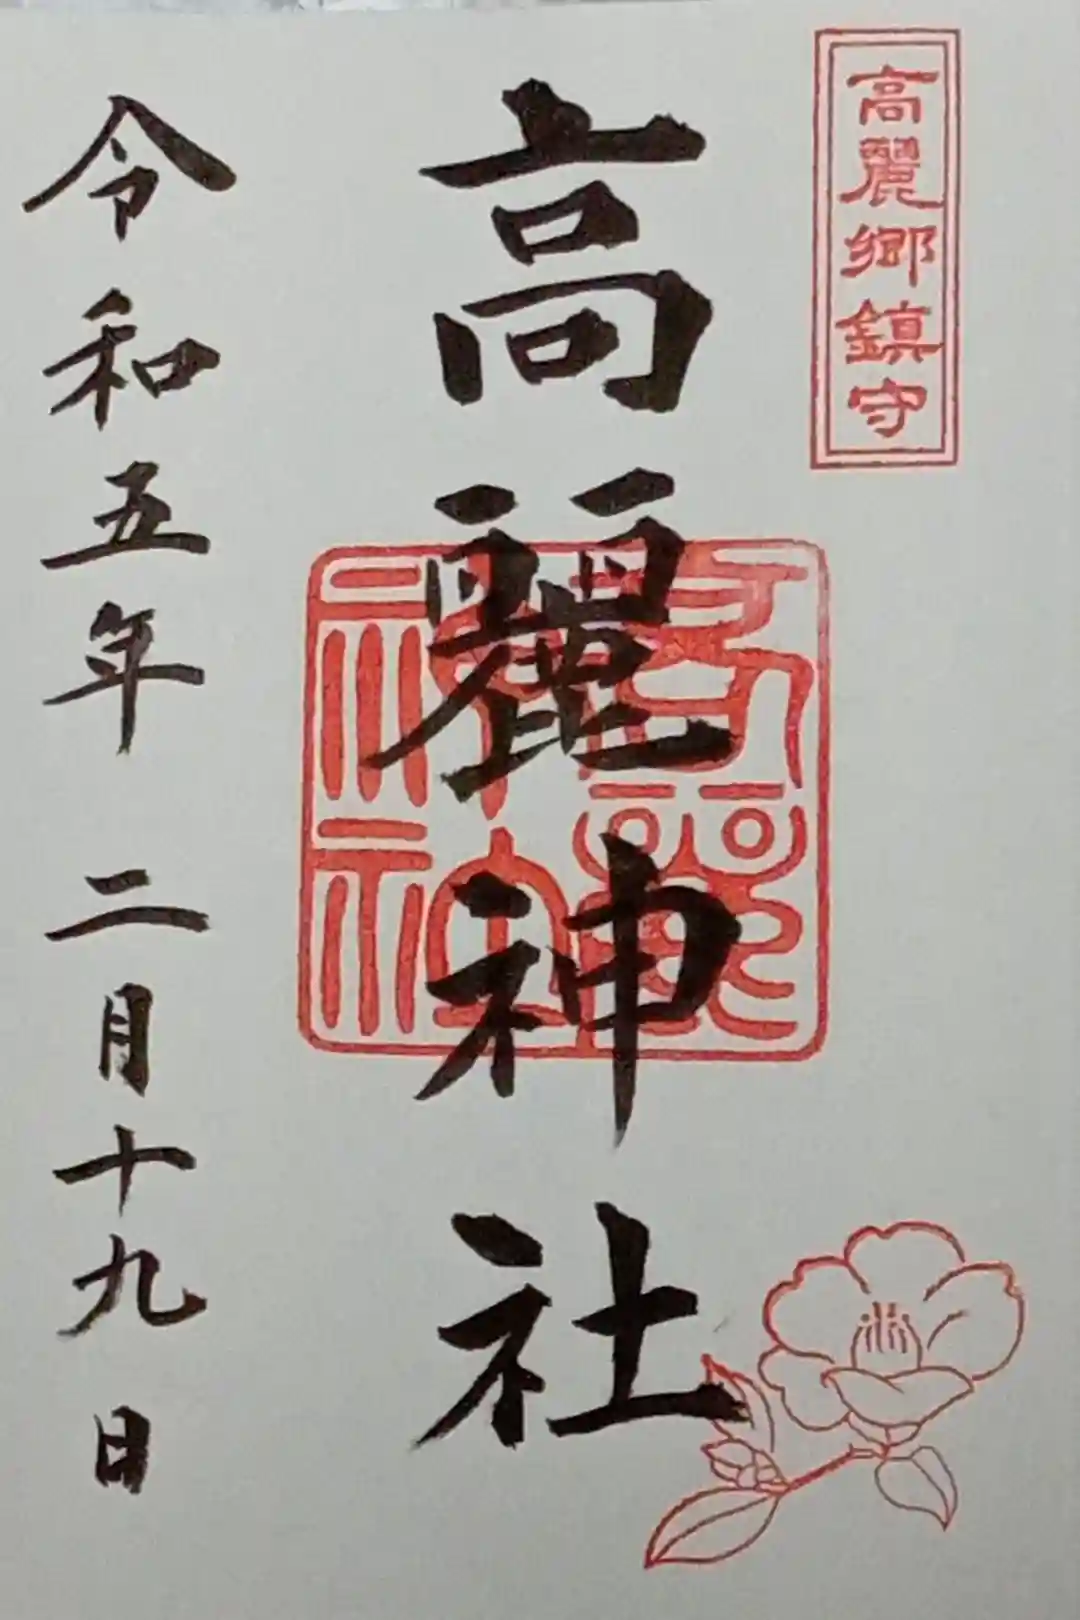 高麗郷鎮守
高麗神社
高麗神社
令和五年 二月十九日